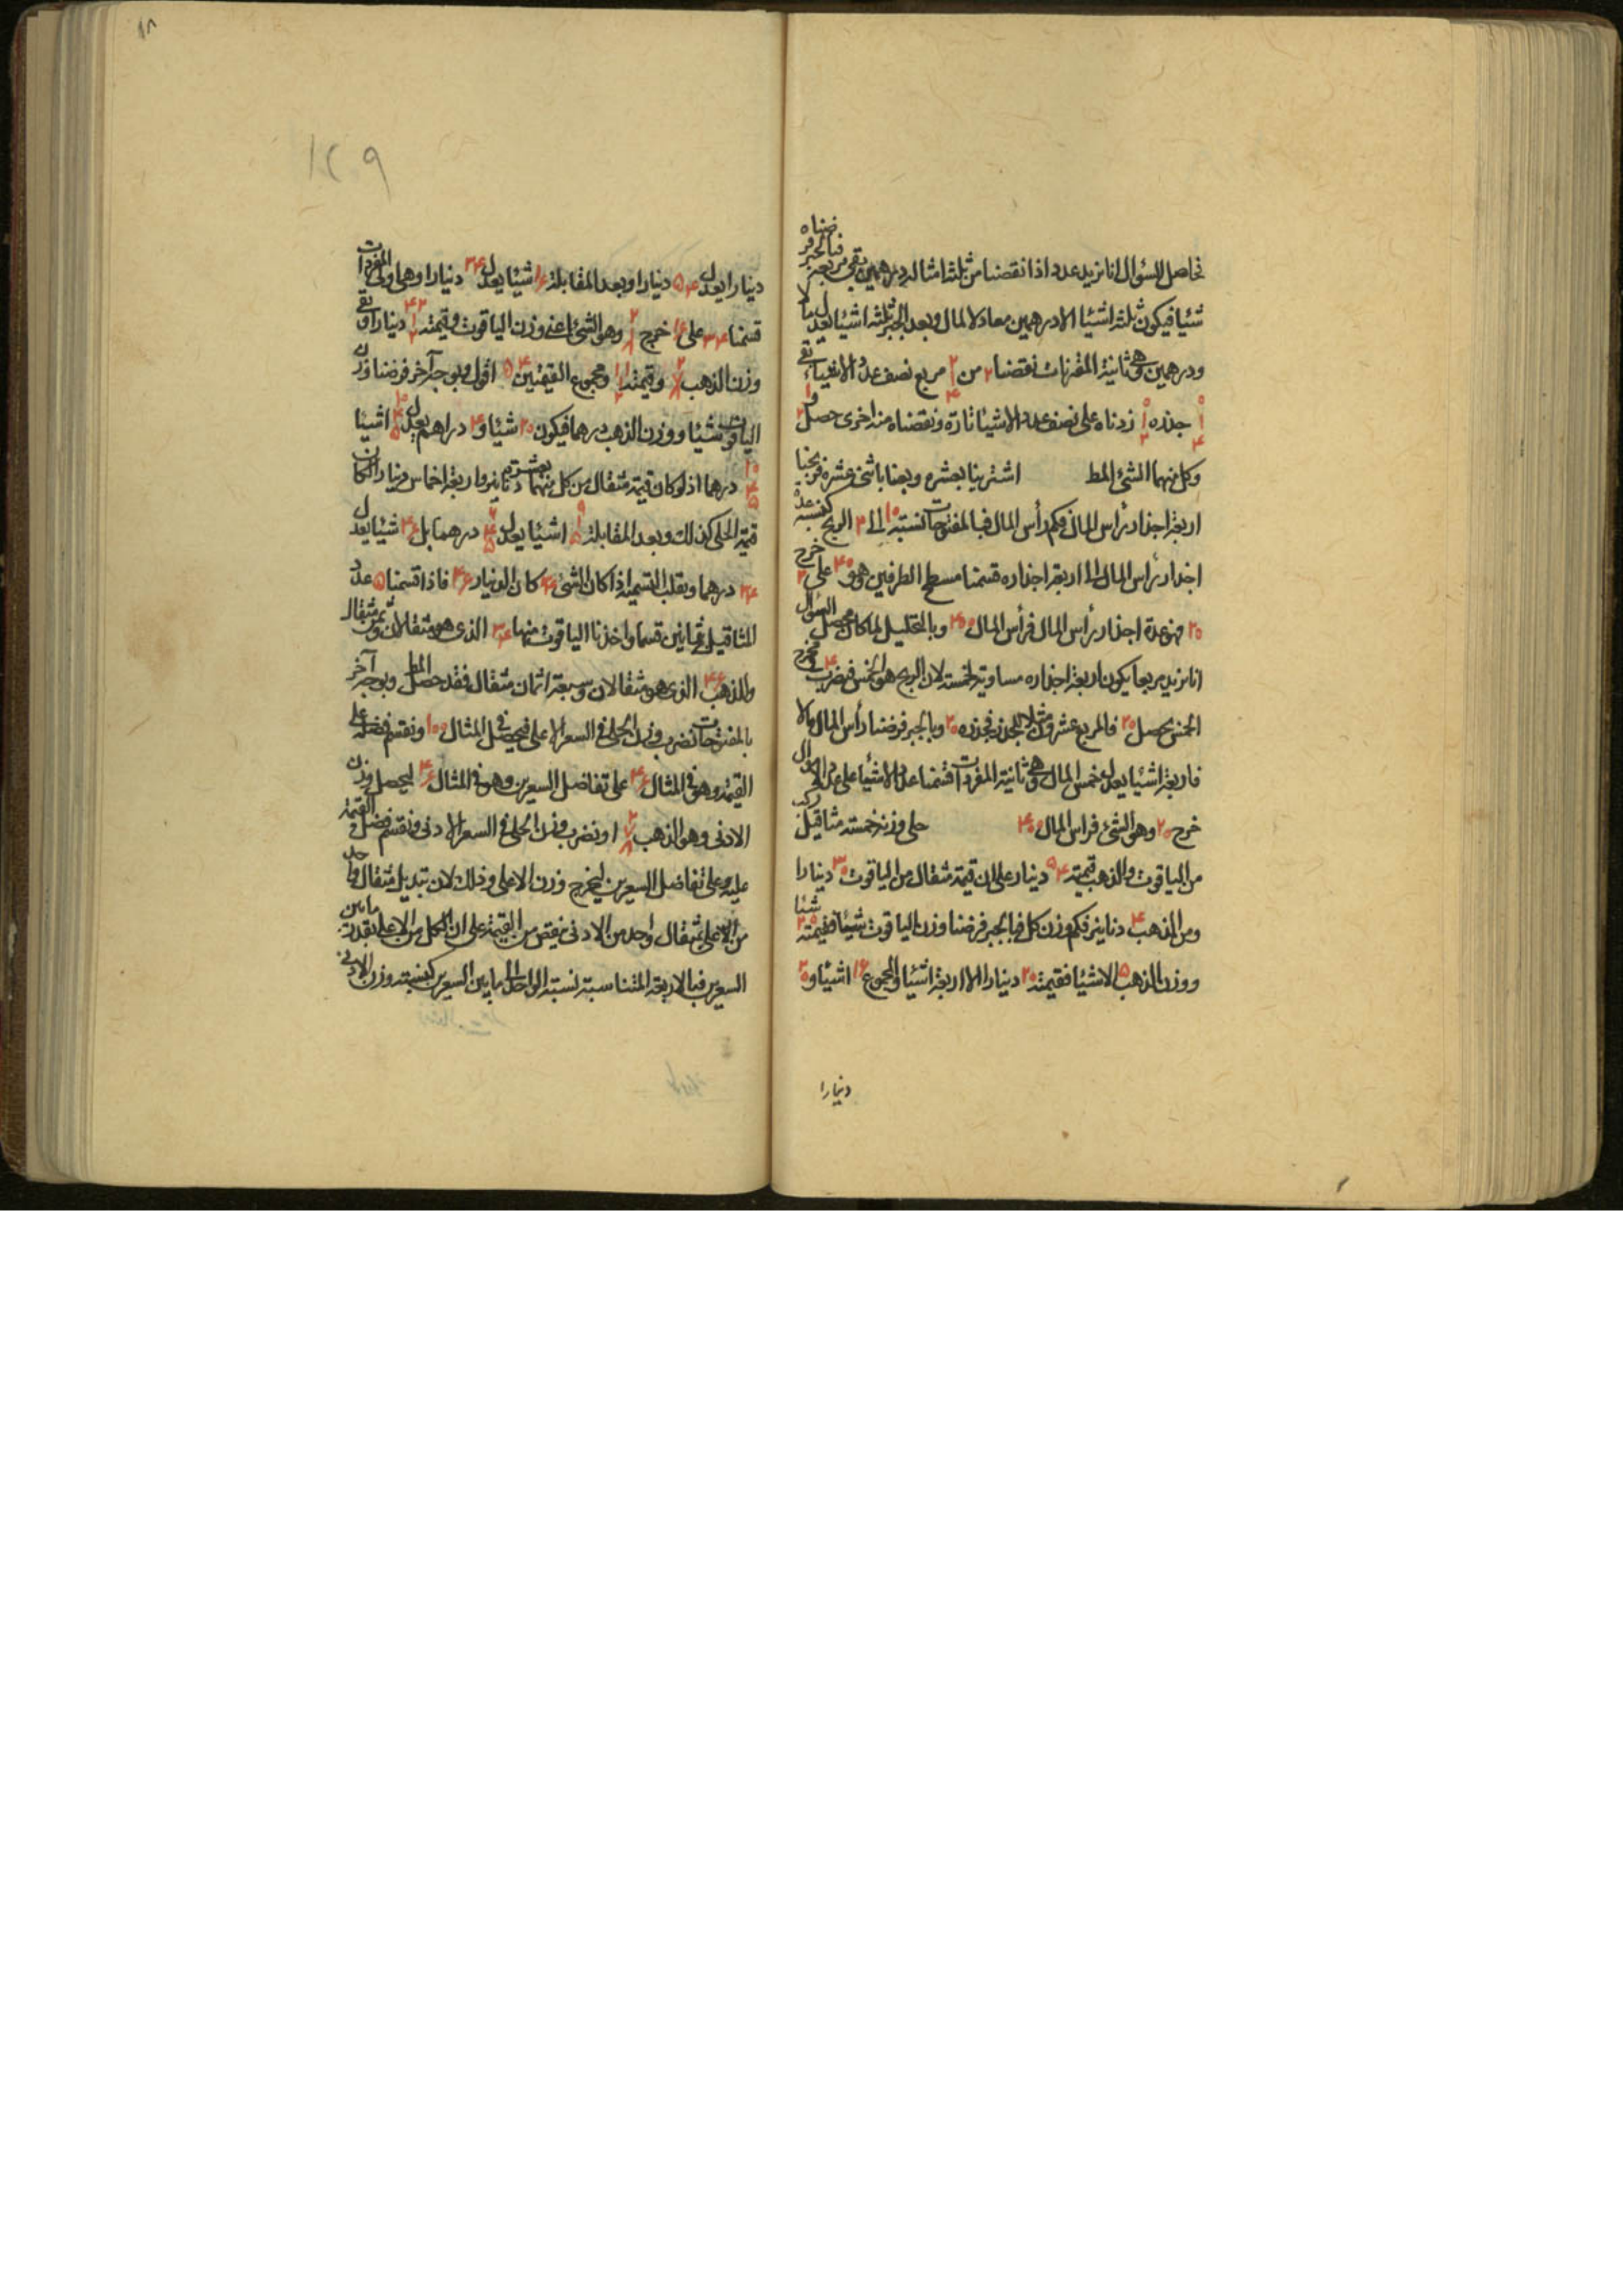 فحاصل السؤال انا نريد عددا اذا نقصنا من ثلثة امثاله درهمين بقى مربعه فبالجبر فرضناه
شيئا فيكون ثلثة اشيئا الا درهمين معادلا لمال وبعد الجبر ثلثة اشيئا يعدل مالا
ودرهمين وهى ثانية المقترنات نقصنا ٢ من ٢ ١ ٤ مربع نصف عدد الاشياء بقى
٠ ١ ٤ جذره ٠ ١ ٢ زدناه على نصف عدد الاشيئا تارة ونقصناه منه اخرى حصل ٢ و ١
وكل منهما الشئ المط اشترينا بعشرة وبعنا باثنى عشرة فربحنا
اربعة اجذار رأس المال فكم رأس المال فبالمفتوحات نسبة ١٠ الى ٢ الربح كنسبة عدة
اجذار رأس المال الى اربعة اجذاره قسمنا مسطح الطرفين وهو ٤٠ على ٢ خرج
٢٠ فهو عدة اجذار رأس المال فرأس المال ٤٠٠ وبالتحليل لما كان محصل السؤال
انا نريد مربعا يكون اربعة اجذاره مساوية لخمسه لان الربح هو الخمس فبضرب ٤ فى مخرج
الخمس يحصل ٢٠ فالمربع عشرون مثلا للجذر فجذره ٢٠ وبالجبر فرضنا رأس المال مالا
فاربعة اشيئا يعدل خمس المال وهى ثانية المفردات قسمنا عدد الاشيئا على عدد الاموال
خرج ٢٠ وهو الشئ فراس المال ٤٠٠ حلى وزنه خمسة مثاقيل ركب
من الياقوت والذهب قيمته ٥٤ دينار على ان قيمة مثقال من الياقوت ٢٠ دينارا
ومن الذهب ٤ دنانير فكم وزن كل فبالجبر فرضنا وزن الياقوت شيئا فقيمته ٢٠ شيئا
ووزن الذهب ٥ الا شيئا فقيمته ٢٠ دينارا الا اربعة اشيئا والمجموع ١٦ اشيئا و ٢٠
دينارا
١٨
١٢٩
دينارا يعدل ٥٤ دينارا وبعد المقابلة ١٦ شيئا يعدل ٣٤ دينارا وهى اولى المفردات
قسمنا ٣٤ على ١٦ خرج ٢ ١ ٨ وهو الشئ اعنى وزن الياقوت وقيمته ٤٢ ١ ٢ دينارا وبقى
وزن الذهب ٢ ٧ ٨ وقيمته ١١ ١ ٢ ومجموع القيمتين ٥٤ اقول وبوجه آخر فرضنا وزن
الياقوت شيئا ووزن الذهب درهما فيكون ٢٠ شيئا و ٤ دراهم يعدل ١٠ ٤ ٥ اشيئا
١٠ ٤ ٥ درهما اذ لو كان قيمة مثقال من كل منهما بعشرة دنانير واربعة اخماس دينار لكان
قيمة الحلى كذلك وبعد المقابلة ٩ ١ ٥ اشيئا يعدل ٦ ٤ ٥ درهما بل ٤٦ شيئا يعدل
٣٤ درهما وبقلب التسمية اذا كان الشئ ٣٤ كان الدينار ٤٦ فاذا قسمنا ٥ عدد
المثاقيل بثمانين قسما واخذنا الياقوت منها ٣٤ الذى هو مثقالان وثمن مثقال
وللذهب ٤٦ الذى هو مثقالان وسبعة اثمان مثقال فقد حصل المط وبوجه آخر
بالمفتوحات نضرب وزن الحلى فى السعر الاعلى فيحصل فى المثال ١٠٠ ونقسم فضله على
القيمة وهو فى المثال ٤٦ على تفاضل السعرين وهو فى المثال ١٦ ليحصل وزن
الادنى وهو الذهب ٢ ٧ ٨ او نضرب وزن الحلى فى السعر الادنى ونقسم فضل القيمة
عليه على تفاضل السعرين ليخرج وزن الاعلى وذلك لان تبديل مثقال واحد
من الاعلى بمثقال واحد من الادنى ينقص من القيمة على ان الكل من الاعلى بقدر ما بين
السعرين فبالاربعة المتناسبة نسبة الواحد الى ما بين السعرين كنسبة وزن الادنى